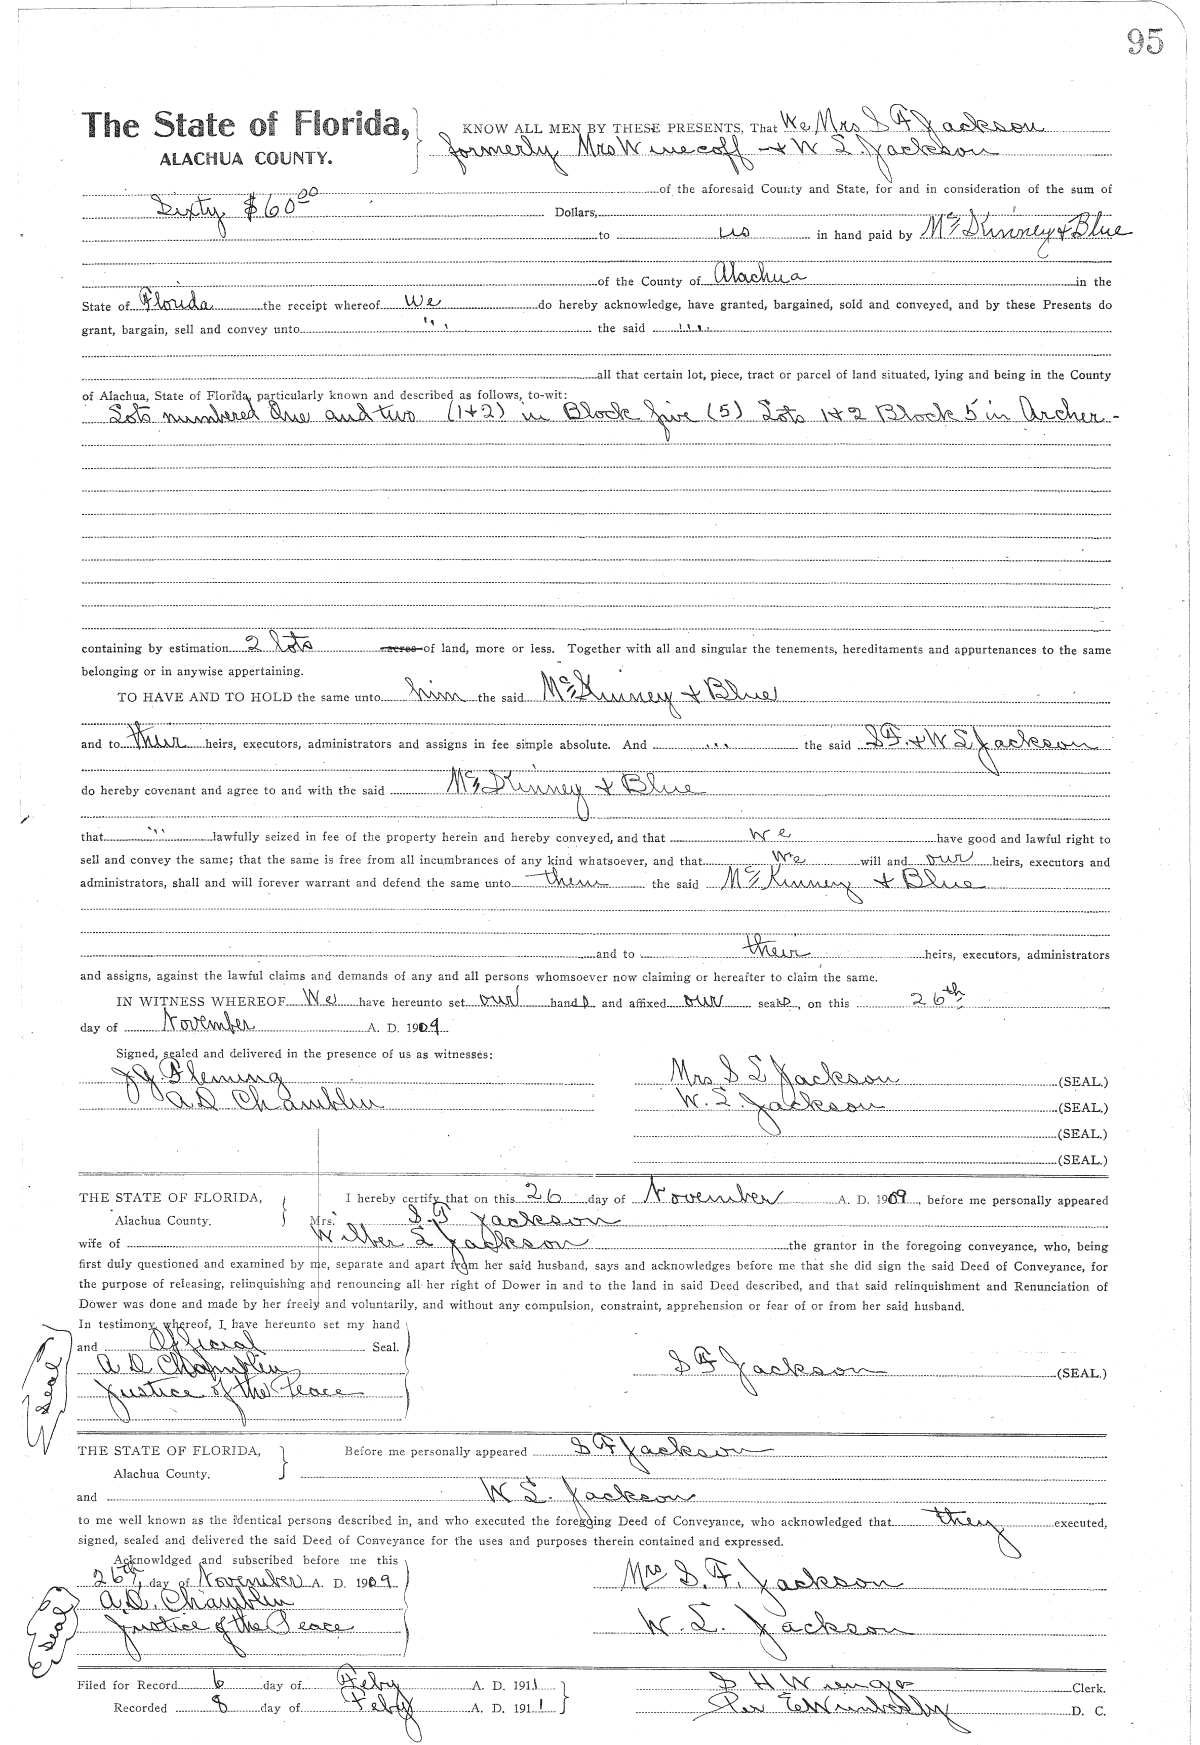 95
The State of Florida, KNOW ALL MEN BY THESE PRESENTS, That We Mrs S F Jackson
ALACHUA COUNTY. formerly Mrs Winecoff + W L Jackson
of the aforesaid County and State, for and in consideration of the sum of
Sixty $60 00 Dollars,
to us in hand paid by McKinney + Blue
of the County of Alachua in the
State of Florida the receipt whereof we do hereby acknowledge, have granted, bargained, sold and conveyed, and by these Presents do
grant, bargain, sell and convey unto " the said "
all that certain lot, piece, tract or parcel of land situated, lying and being in the County
of Alachua, State of Florida, particularly known and described as follows, to-wit:
Lots numbered One and two (1+2) in Block five (5) Lots 1+2 Block 5 in Archer -
containing by estimation 2 lots acres of land, more or less. Together with all and singular the tenements, hereditaments and appurtenances to the same
belonging or in anywise appertaining.
TO HAVE AND TO HOLD the same unto him the said McKinney + Blue
and to their heirs, executors, administrators and assigns in fee simple absolute. And " the said S F. + W L Jackson
do hereby covenant and agree to and with the said McKinney + Blue
that " lawfully seized in fee of the property herein and hereby conveyed, and that we have good and lawful right to
sell and convey the same; that the same is free from all incumbrances of any kind whatsoever, and that We will and our heirs, executors and
administrators, shall and will forever warrant and defend the same unto them the said McKinney + Blue
and to their heirs, executors, administrators
and assigns, against the lawful claims and demands of any and all persons whomsoever now claiming or hereafter to claim the same.
IN WITNESS WHEREOF We have hereunto set our hands and affixed our seals, on this 26th
day of November A. D. 1909
Signed, sealed and delivered in the presence of us as witnesses:
J.G. Fleming Mrs S L Jackson (SEAL.)
A D Chamblin W. L. Jackson (SEAL.)
(SEAL.)
(SEAL.)
THE STATE OF FLORIDA, I hereby certify that on this 26 day of November A. D. 1909, before me personally appeared
Alachua County. Mrs. S F Jackson
wife of Wilber L Jackson the grantor in the foregoing conveyance, who, being
first duly questioned and examined by me, separate and apart from her said husband, says and acknowledges before me that she did sign the said Deed of Conveyance, for
the purpose of releasing, relinquishing and renouncing all her right of Dower in and to the land in said Deed described, and that said relinquishment and Renunciation of
Dower was done and made by her freely and voluntarily, and without any compulsion, constraint, apprehension or fear of or from her said husband.
In testimony whereof, I have hereunto set my hand
and Official Seal.
A D Chamblin S F Jackson (SEAL.)
Justice of the Peace
Seal
THE STATE OF FLORIDA, Before me personally appeared S F Jackson
Alachua County.
and W L. Jackson
to me well known as the identical persons described in, and who executed the foregoing Deed of Conveyance, who acknowledged that they executed,
signed, sealed and delivered the said Deed of Conveyance for the uses and purposes therein contained and expressed.
Acknowldged and subscribed before me this
26th day of November A. D. 1909 Mrs S. F. Jackson
A. D. Chamblin
Justice of the Peace W. L. Jackson
Seal
Filed for Record 6 day of Feby A. D. 1911 S H Wienges Clerk.
Recorded 8 day of Feby A. D. 1911 Per D. C.